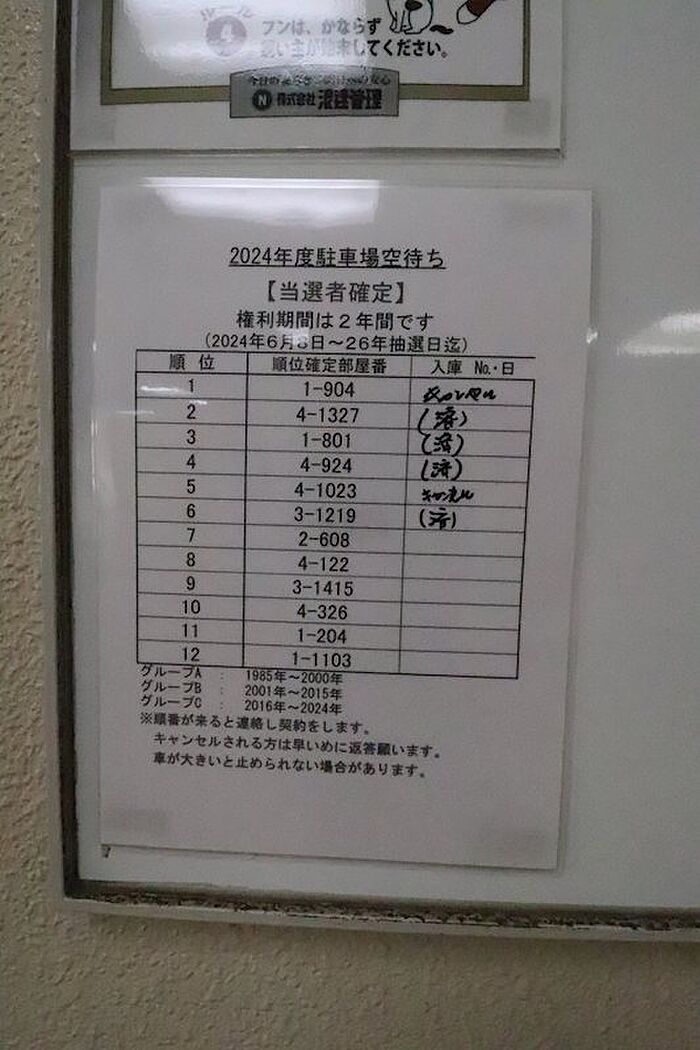 ルール
4
フンは、かならず
飼い主が始末してください。
N 株式会社
2024年度駐車場空待ち
【当選者確定】
権利期間は２年間です
(2024年6月8日～26年抽選日迄)
順 位 順位確定部屋番 入庫 No.・日
1 1-904 キャンセル
2 4-1327 (済)
3 1-801 (済)
4 4-924 (済)
5 4-1023 キャンセル
6 3-1219 (済)
7 2-608
8 4-122
9 3-1415
10 4-326
11 1-204
12 1-1103
グループA : 1985年～2000年
グループB : 2001年～2015年
グループC : 2016年～2024年
※順番が来ると連絡し契約をします。
キャンセルされる方は早いめに返答願います。
車が大きいと止められない場合があります。